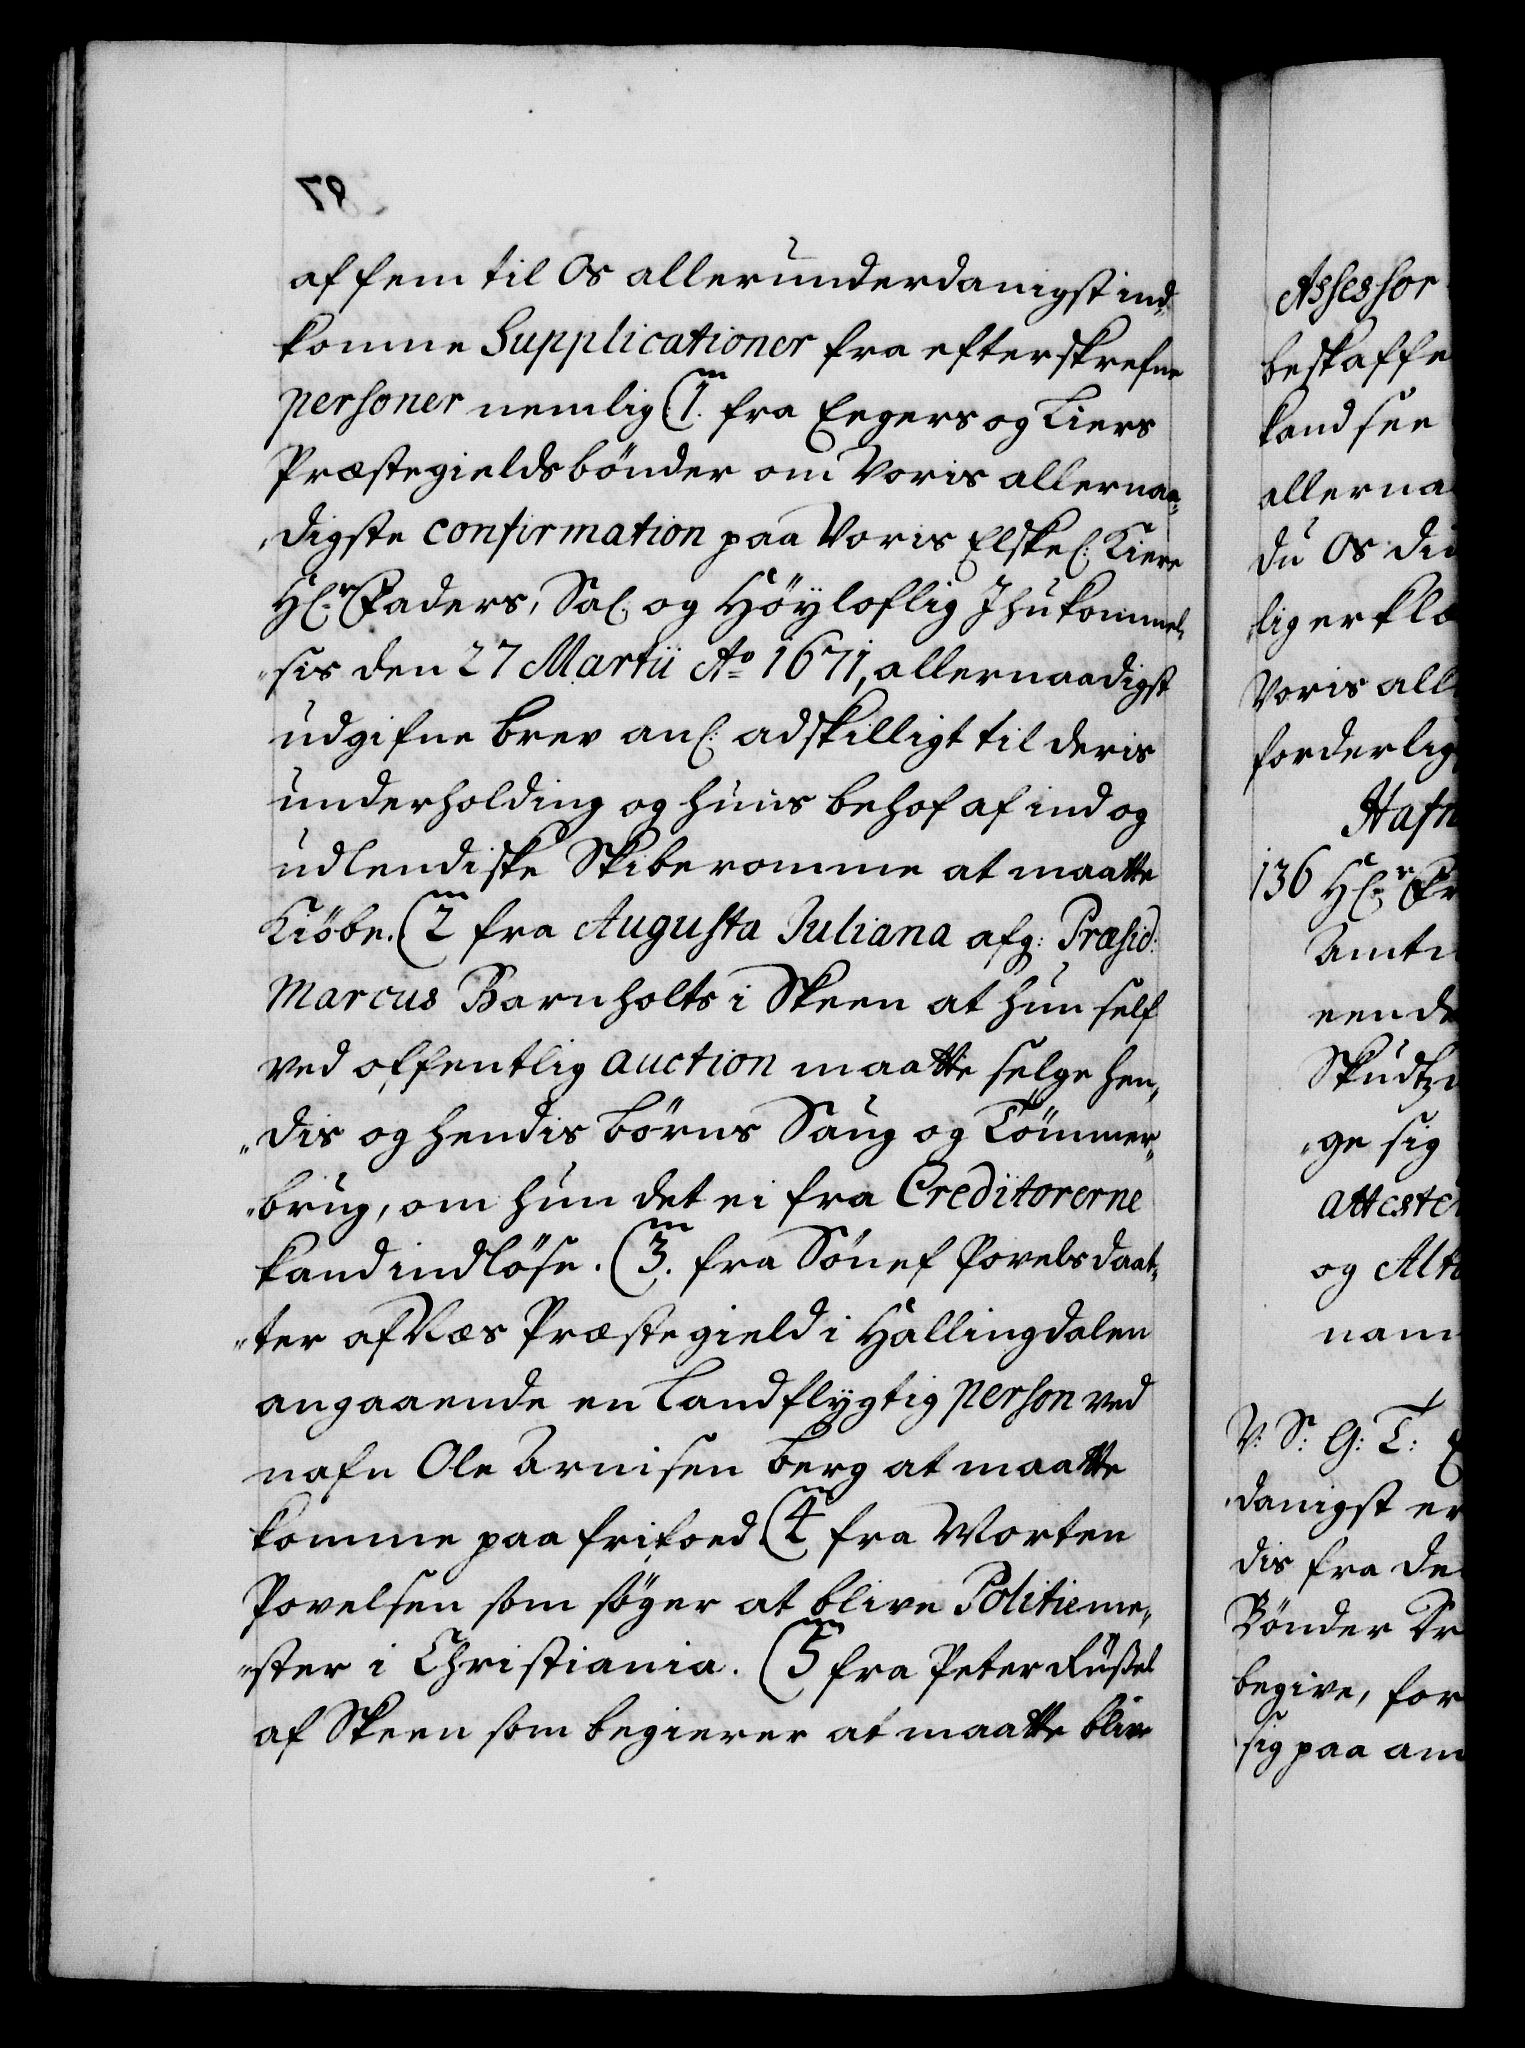 af fem til Os allerunderdanigst ind-
komne Supplicationer fra efterskrefne
personer nemlig (1. fra Eegers og Liers
Præstegieldsbönder om Voris allernaa-
digste confirmation paa Voris Elskel: Kiere
Hl:r Faders, Sal. og Höyloflig Ihukommel-
sis den 27 Martii Ao 1671, allernaadigst
udgifne brev anl: adskilligt til deris
underholding og huus behof af ind og
udlendiske Skiberomme at maatte
Kiöbe. (2 fra Augusta Juliana afg: Præsid:
Marcus Barnholts i Skeen at hun self
ved offentlig auction maatte selge hen-
dis og hendis börns Saug og Tömmer-
brug, om hun det ei fra Creditorerne
kand indlöse. (3. fra Sönef Povelsdaat-
ter af Næs Præstegield i Hallingdalen
angaaende en landflygtig person ved
nafn Ole Arnisen berg at maatte
komme paa frifoed. (4 fra Morten
Povelsen som söger at blive Politieme-
ster i Christiania. (5 fra Peter Russel
af Skeen som begierer at maatte blive
Assessor
beskaffe
kand see
allerna
du Os di
lig erklæ
Voris all
forderlig
Hafn
136 Hl:r Fr
Amt
een de
Skudtz
ge sig
atteste
og Alt
nam
V: S: G: T:
danigst er
dis fra de
Bönder Tr
begive, for
sig paa am